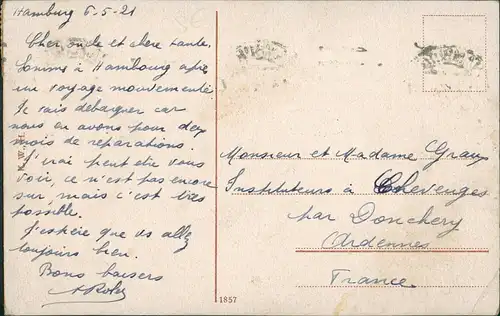 Hamburg 6-5-21
Cher oncle et chère tante.
Sommes à Hambourg après
un voyage mouvementé
Je vais débarquer car
nous en avons pour deux
mois de réparations.
J'irai peut être vous
voir, ce n'est pas encore
sur, mais c'est très
possible.
J'espère que vs allez
toujours bien.
Bons baisers
Monsieur et Madame
Instituteurs à Chevenges
par Donchery
Ardennes
France
1857